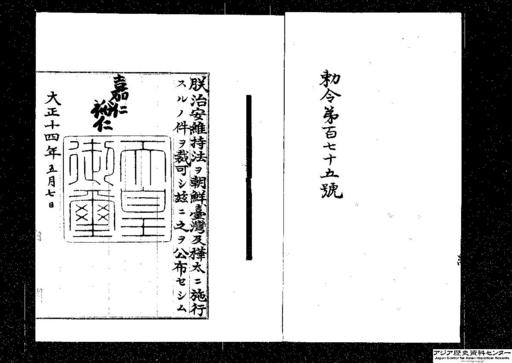 勅令第百七十五號
朕治安維持法ヲ朝鮮臺灣及樺太ニ施行
スルノ件ヲ裁可シ玆ニ之ヲ公布セシム
嘉仁
裕仁
天皇御璽
大正十四年五月七日
アジア歴史資料センター
Japan Center for Asian Historical Records